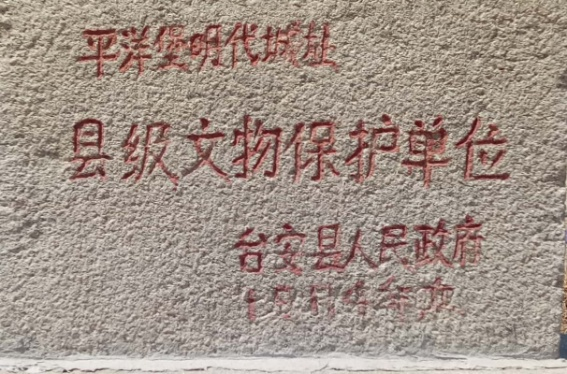 平洋堡明代城址
县级文物保护单位
台安县人民政府